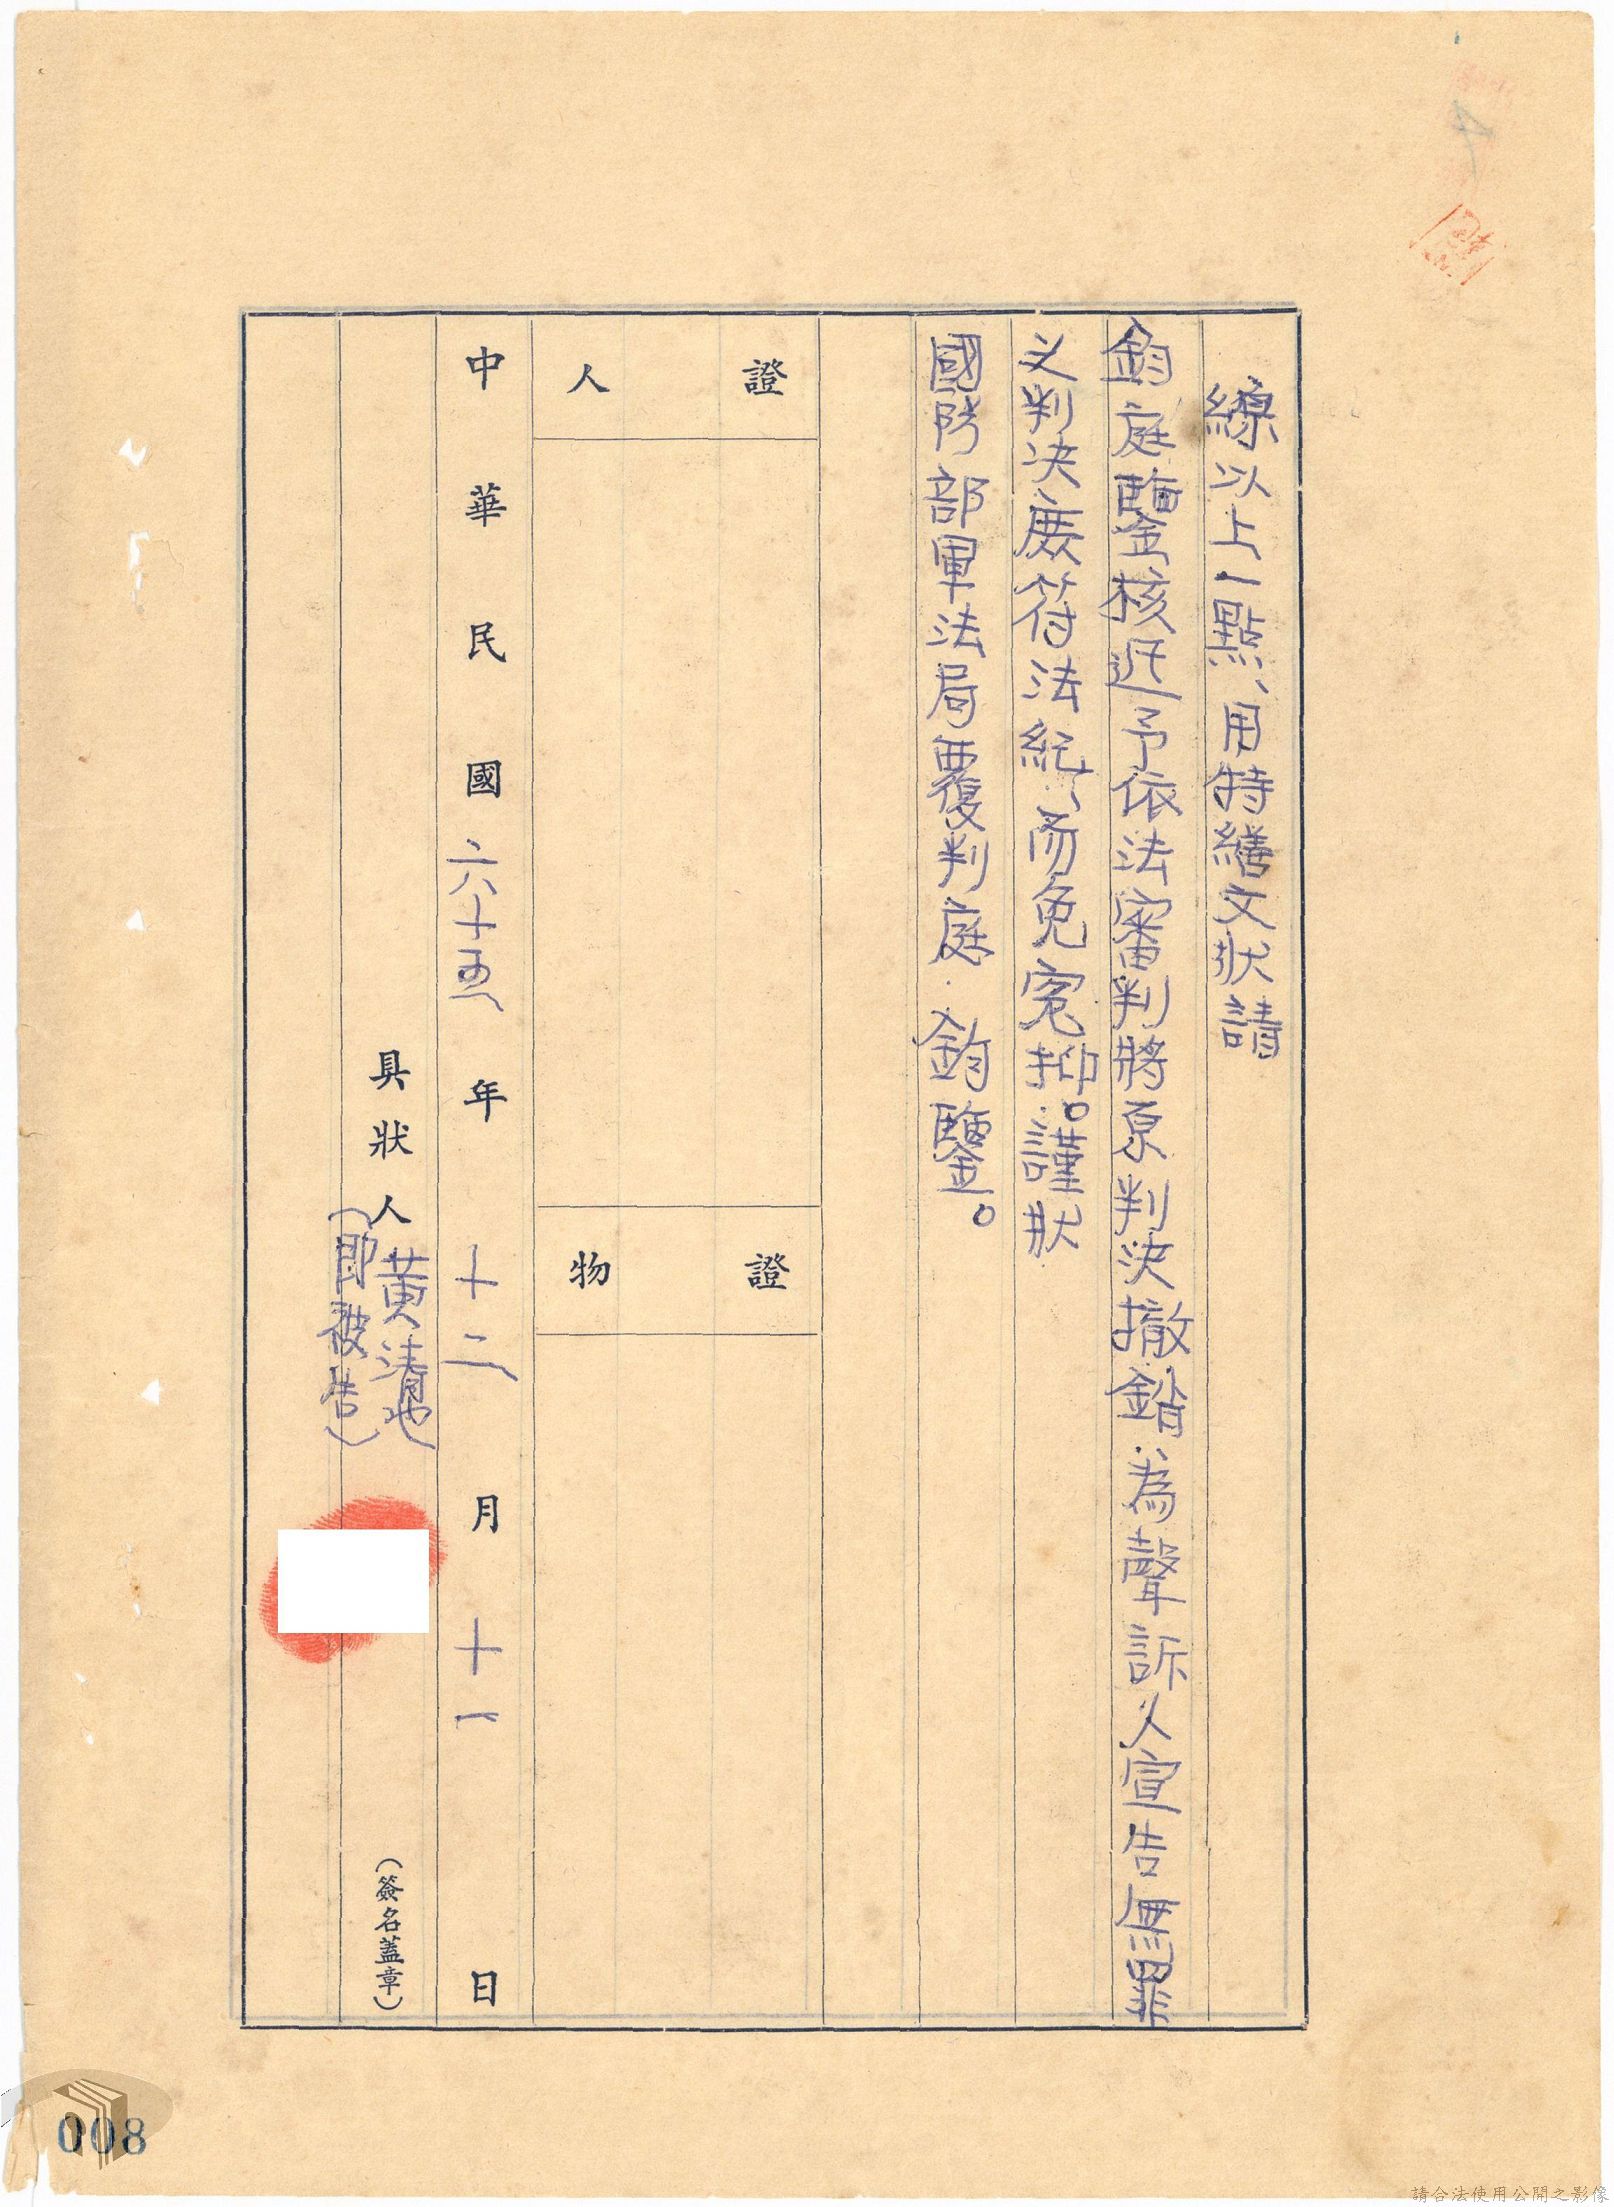 綜以上一點、用特繕文狀請
鈞庭鑒核迅予依法審判將原判決撤銷、為聲訴人宣告無罪
之判決庶符法紀、而免冤抑。謹狀
國防部軍法局覆判庭 鈞鑒。
證人
證物
中華民國六十五年十二月十一日
具狀人 黃清池 (簽名蓋章)
(即被告)
008
請合法使用公開之影像